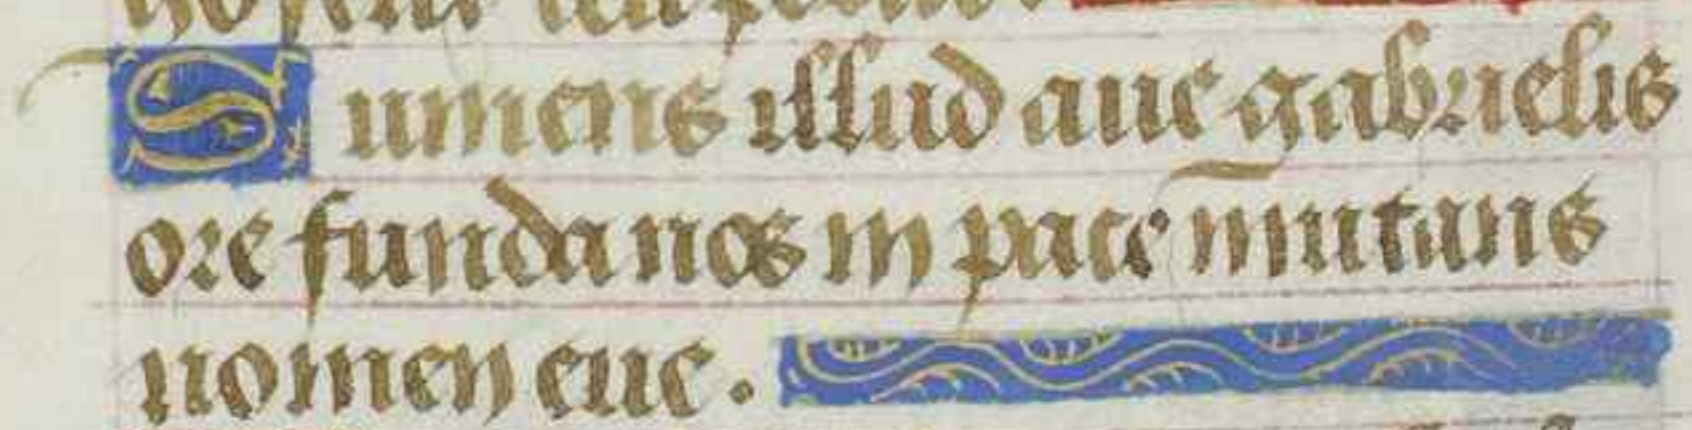 Sumens illud aue gabrielis
ore funda nos in pace mutans
nomen eue.